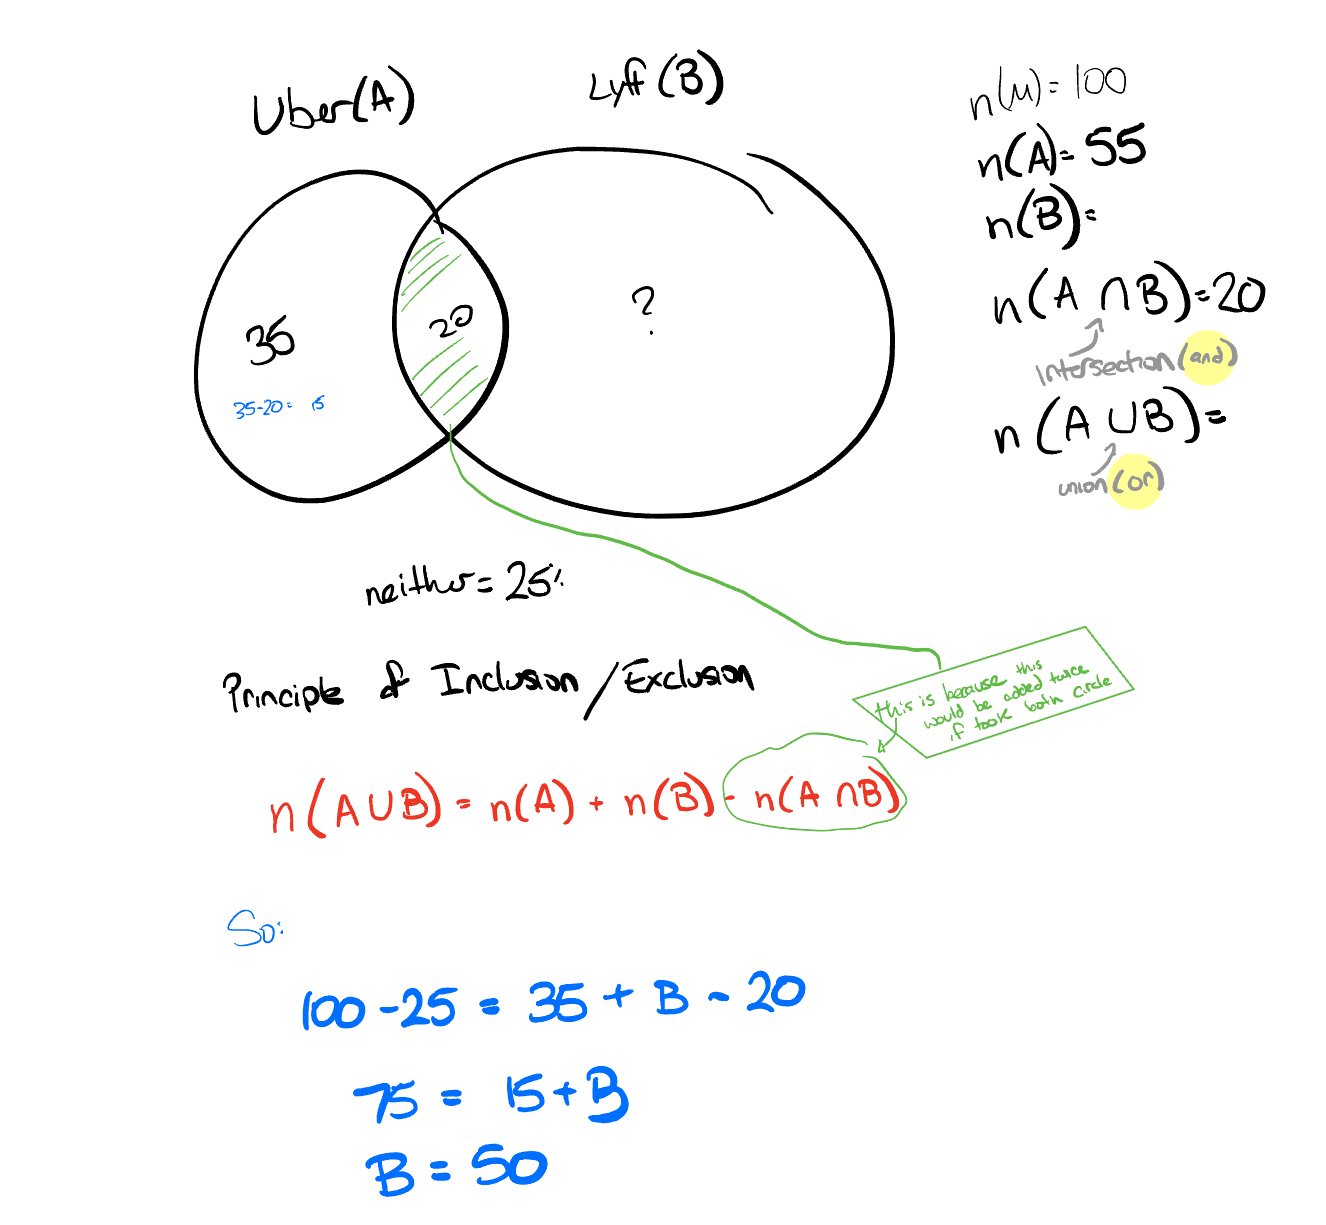 Uber(A)
Lyft (B)
n(μ) = 100
n(A) = 55
n(B) =
n(A ∩ B) = 20
intersection (and)
n(A ∪ B) =
union (or)
35
20
?
35-20 = 15
neither = 25%
Principle of Inclusion / Exclusion
this is because this
would be added twice
if took both circle
n(A ∪ B) = n(A) + n(B) - n(A ∩ B)
So:
100 - 25 = 35 + B - 20
75 = 15 + B
B = 50